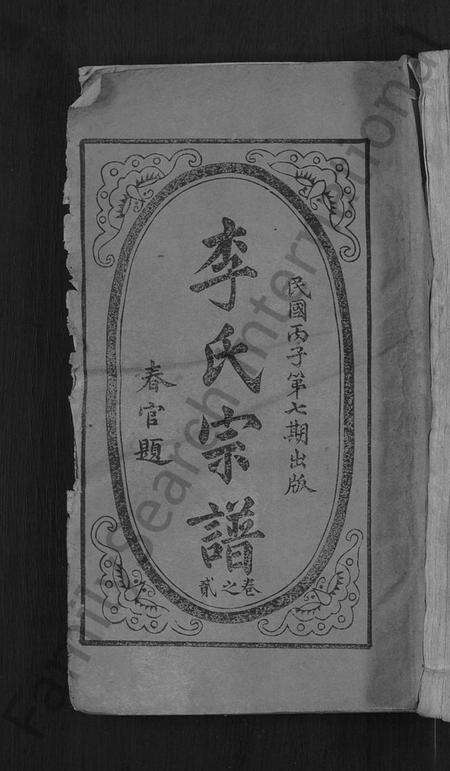 民國丙子第七期出版
李氏宗譜
卷之貳
春官題
FamilySearch International